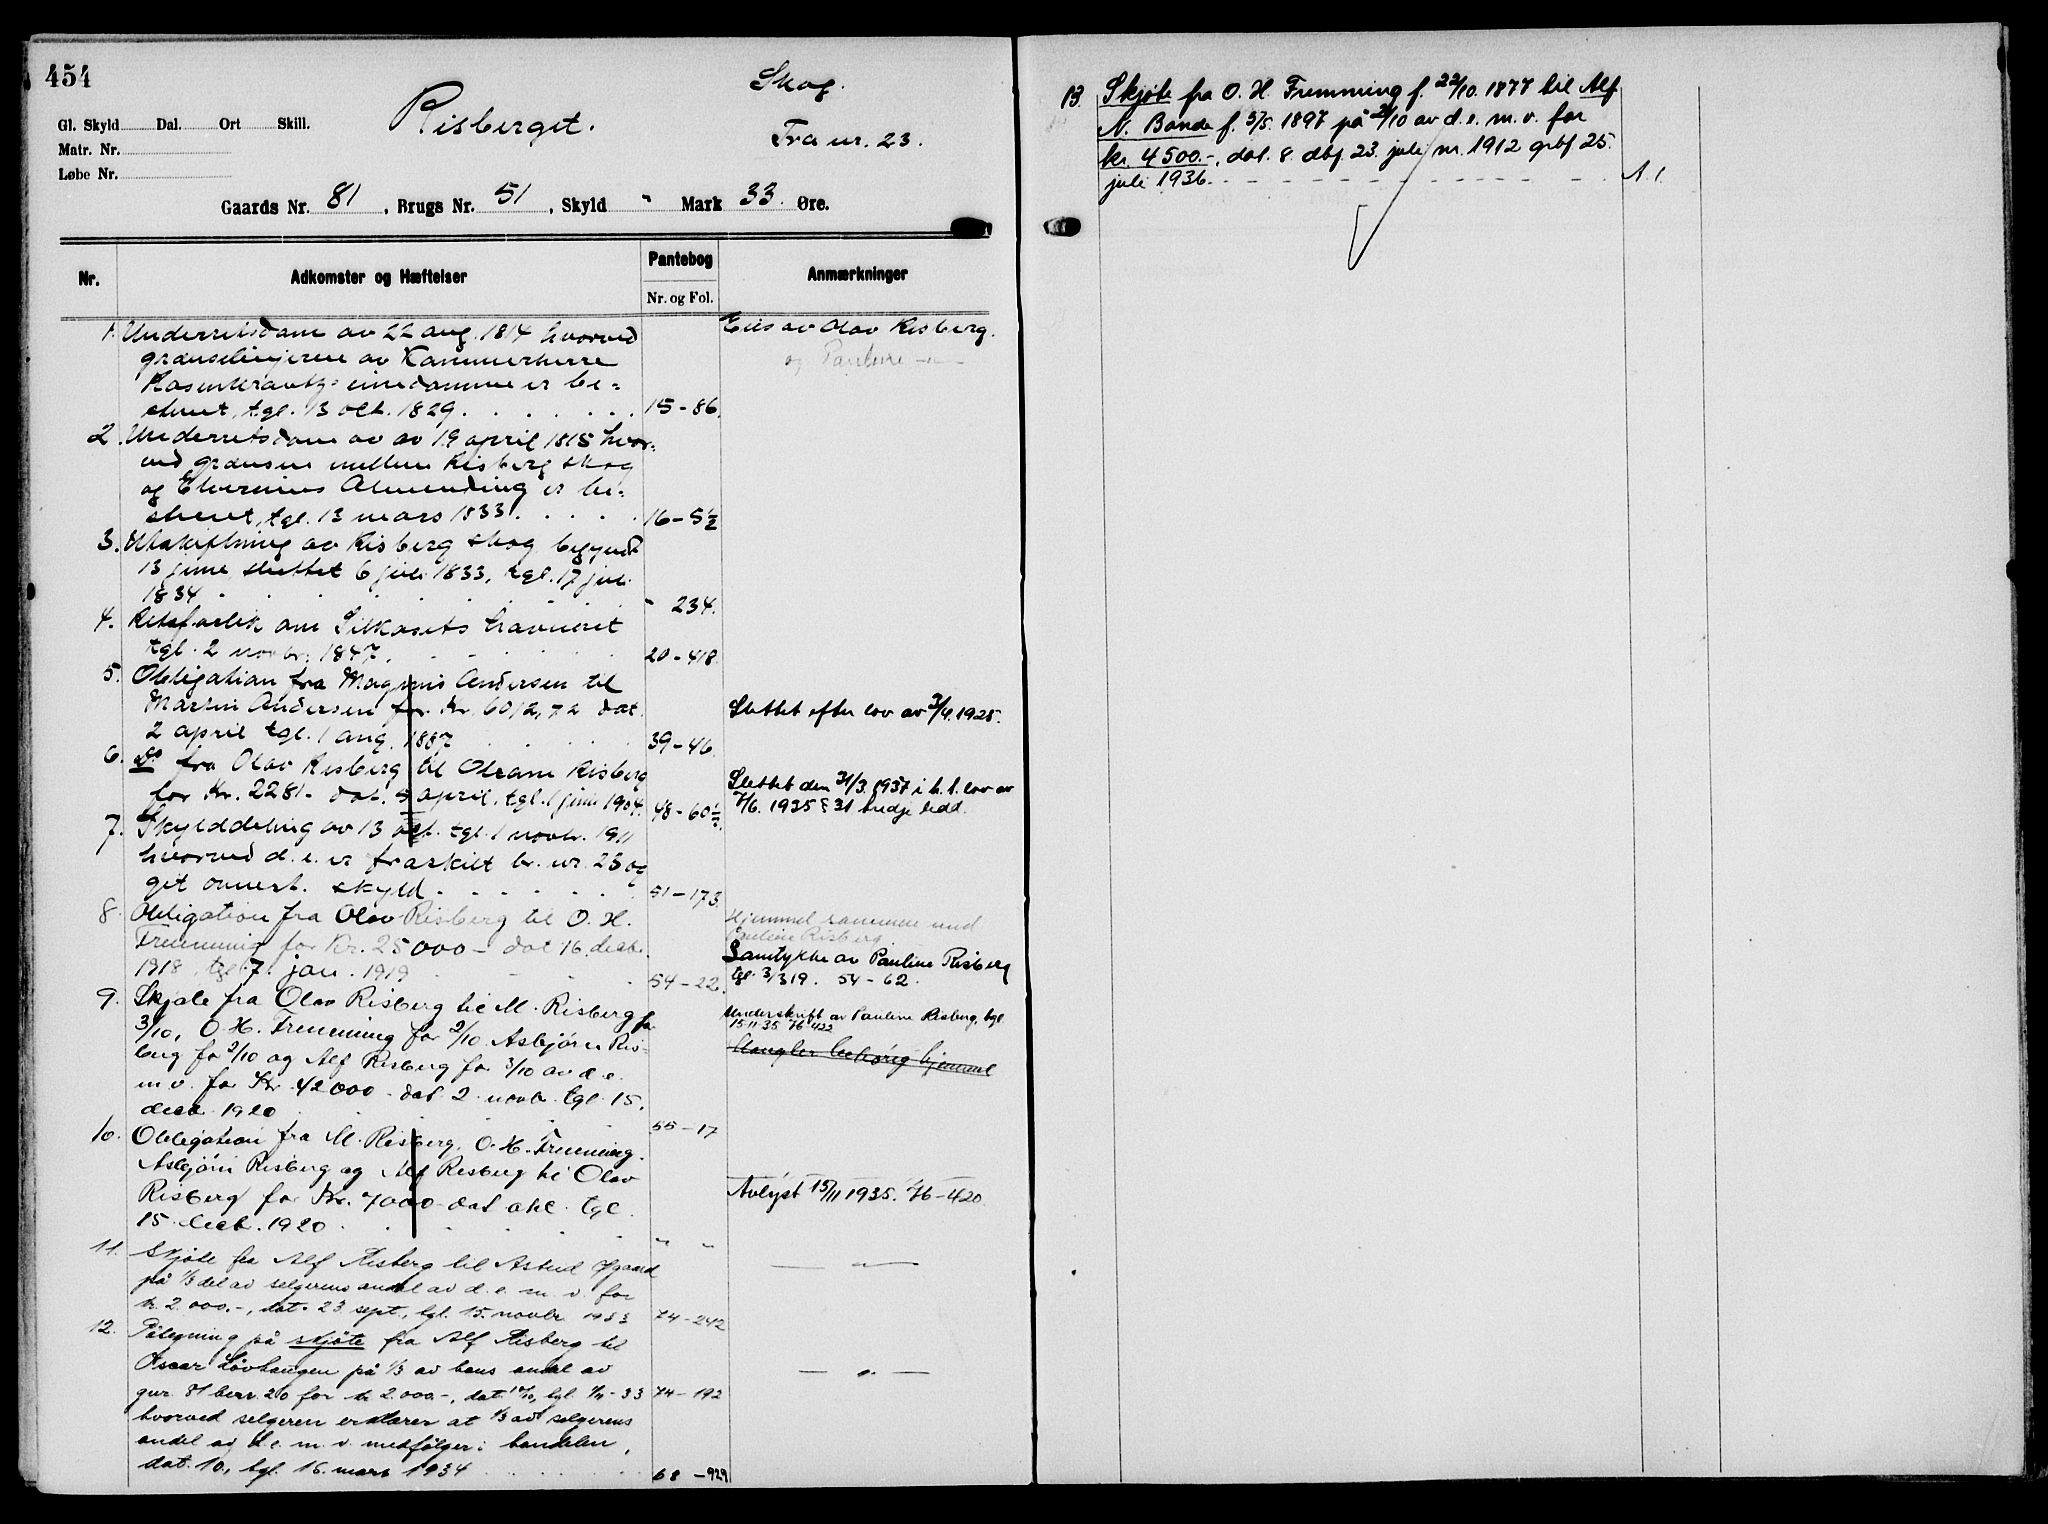 454
Gl. Skyld Dal. Ort Skill.
Matr. Nr.
Løbe Nr.
Risberget.
Skog.
Fra nr. 23.
Gaards Nr. 81, Brugs Nr. 51, Skyld " Mark 33 Øre.
Nr.
Adkomster og Hæftelser
Pantebog
Nr. og Fol.
Anmærkninger
1. Underretsdom av 22 aug. 1814 hvorved
grænselinjerne av Kammerherre
Rosenkrantz's eiendomme er be-
skrevet, tgl. 13 okt. 1829. 15-86.
Eies av Olav Risberg.
og Pauline —"—
2. Underretsdom av av 19 april 1815 hvor-
ved grænsen mellem Risberg skog
og Elverums Almending er be-
skrevet, tgl. 13 mars 1833. 16-5½
3. Utskiftning av Risberg skog, begyndt
13 june, sluttet 6 juli 1833, tgl. 17 juli
1834 " 234.
4. Retsforlik om havneret
tgl. 2 novbr. 1847. 20-418.
5. Obligation fra Magnus Andersen til
Martin Andersen for Kr. 6012,72 dat.
2 april tgl. 1 aug. 1887 39-46.
Slettet efter lov av 3/4.1925.
6. do fra Olav Risberg til Oleane Risberg
for Kr. 2281.- dat. 5 april, tgl. 1 juni 1904. 48-60½.
Slettet den 31/3.1937 i h. t. lov av
7/6. 1935 § 31 tredje ledd.
7. Skylddeling av 13 okt. tgl. 1 novbr. 1911
hvorved d. e. er fraskilt br. nr. 23 og
git anvist. skyld. 51-173.
8. Obligation fra Olav Risberg til O. H.
Fremming for Kr. 25000 - dat 16. decbr.
1918, tgl. 7. jan. 1919 54-22.
Hjemmel sammen med
Pauline Risberg
Samtykke av Pauline Risberg
tgl. 3/3 19. 54-62.
9. Skjøte fra Olav Risberg til M. Risberg for
3/10, O. H. Fremming for 2/10 Asbjørn Ris-
berg for 2/10 og Alf Risberg for 3/10 av d. e.
m. v. for Kr. 42000 - dat 2. novbr. tgl. 15.
decbr. 1920 55-17
Underskrift av Pauline Risberg, tgl.
15-11-35 76-422
Mangler behørig hjemmel
10. Obligation fra M. Risberg, O. H. Fremming.
Asbjørn Risberg og Alf Risberg til Olav
Risberg for Kr. 7000 - dat tgl.
15. decbr. 1920. " "
Avlyst 15/11 1935. 76-420.
11. Skjøte fra Alf Risberg til Astrid Øgaard
på 1/3 del av selgerens andel av d. e. m. v. for
kr. 2.000.-, dat. 23 sept., tgl. 15. novbr. 1933 74-242
— " —
12. Påtegning på skjøte fra Alf Risberg til
Oscar Løvhaugen på 1/3 av hans andel av
gnr. 81 bnr. 20 for kr 2.000.-, tgl. 1/11-33 74-192
— " —
hvorved selgeren erklærer at 1/3 av selgerens
andel av d. e. m. v. medfølger i handelen,
dat. 10, tgl. 16. mars 1934 68-929
13. Skjøte fra O. H. Fremming f. 22/10. 1877 til Alf
N. Bonde f. 5/5. 1897 på 2/10 av d. e. m. v. for
kr. 4500.-, dat. 8. dbf. 23. juli nr. 1912 grbf 25.
juli 1936.